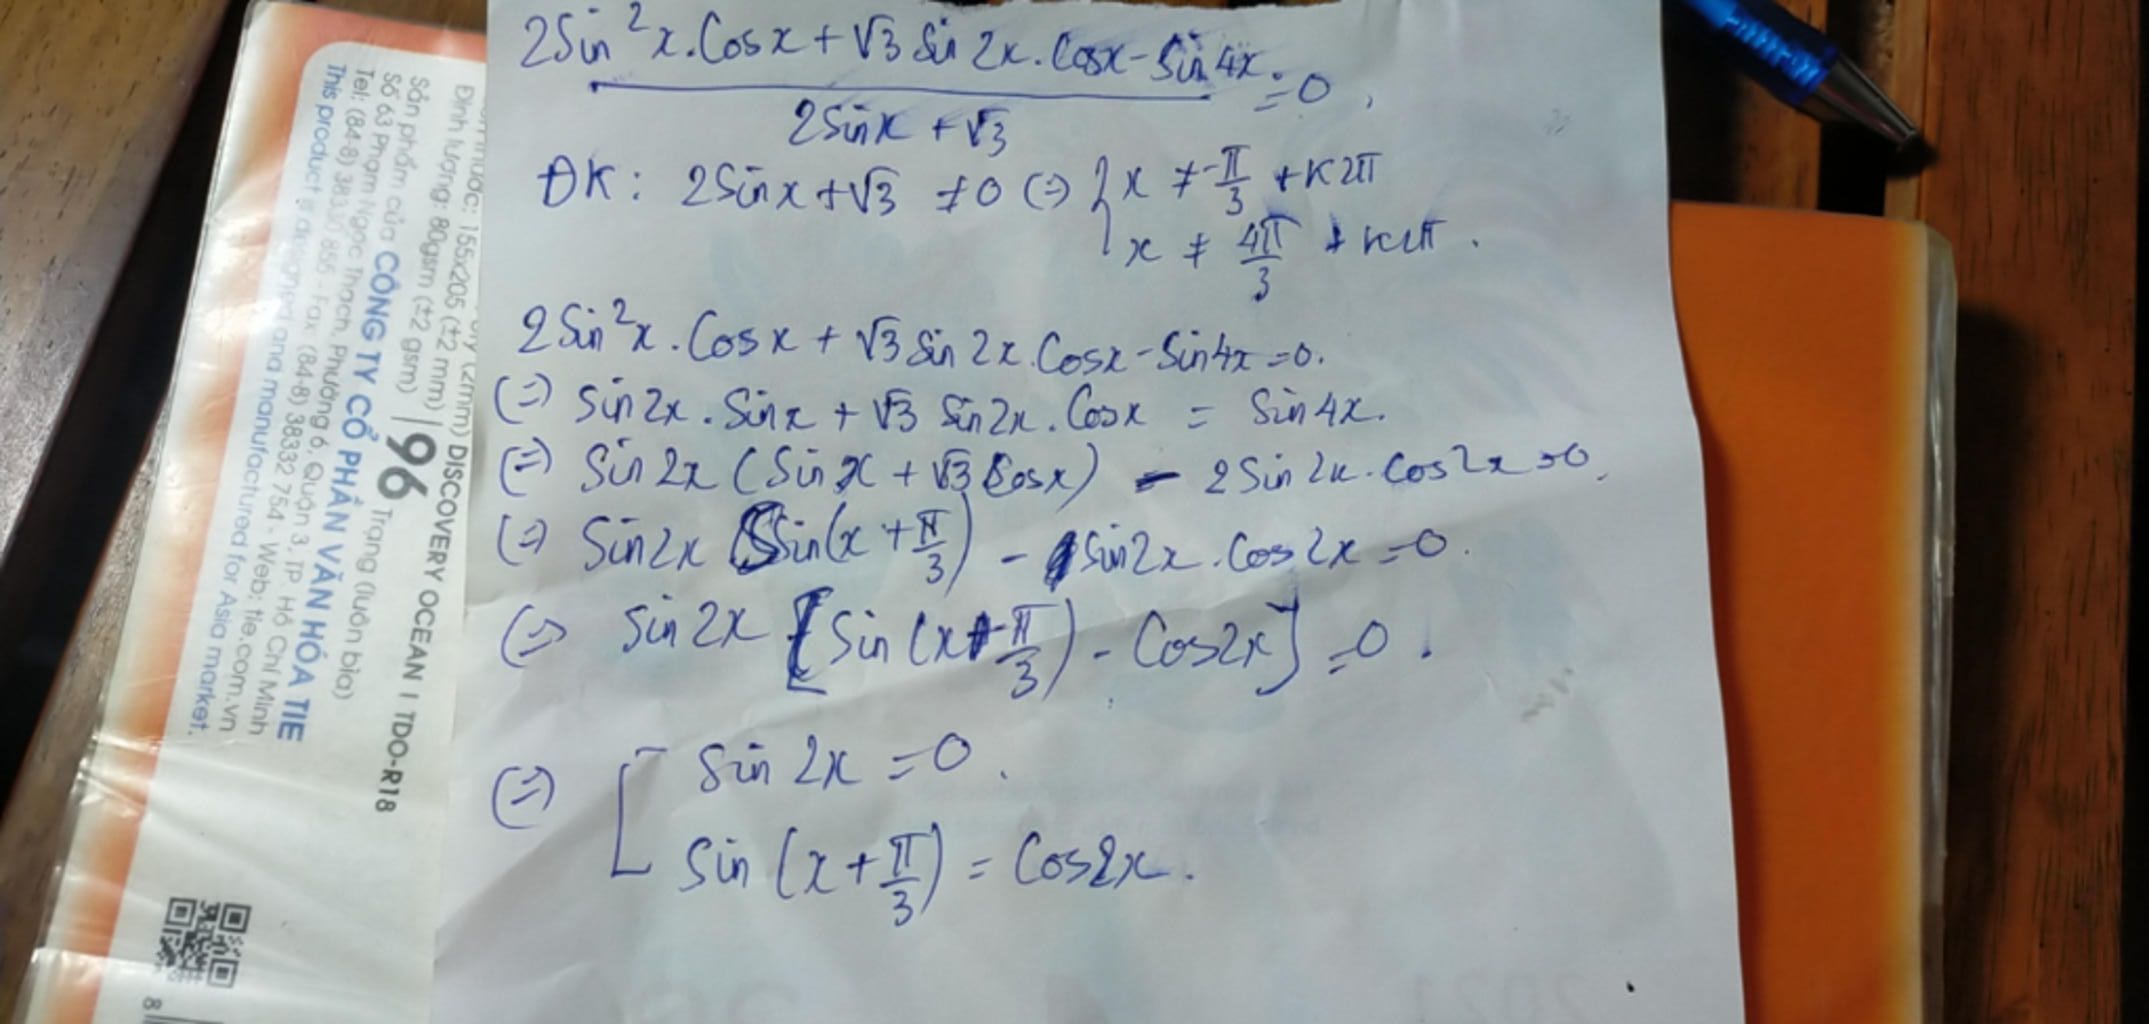 2Sin²x.Cosx + √3 Sin 2x.Cosx - Sin 4x = 0,
2Sinx + √3
ĐK: 2Sinx + √3 ≠ 0 (=) { x ≠ -π/3 + K2π
x ≠ 4π/3 + K2π.
2Sin²x.Cosx + √3 Sin 2x.Cosx - Sin4x = 0.
(=) Sin2x.Sinx + √3 Sin2x.Cosx = Sin4x.
(=) Sin 2x (Sin x + √3 Cosx) - 2Sin 2x.Cos2x = 0,
(=) Sin2x Sin(x + π/3) - Sin2x.Cos2x = 0.
(=) Sin 2x [Sin (x + π/3) - Cos2x] = 0.
(=) [ Sin 2x = 0.
Sin (x + π/3) = Cos2x.
155x205 (±2 mm) DISCOVERY OCEAN I TDO-R18
Định lượng: 80gsm (±2 gsm) | 96 Trang (luôn bìa)
Sản phẩm của CÔNG TY CỔ PHẦN VĂN HÓA TIE
Số 63 Phạm Ngọc Thạch, Phường 6, Quận 3, TP. Hồ Chí Minh
Tel: (84-8) 38330 855 - Fax: (84-8) 38332 754 - Web: tie.com.vn
This product is designed and manufactured for Asia market.
8